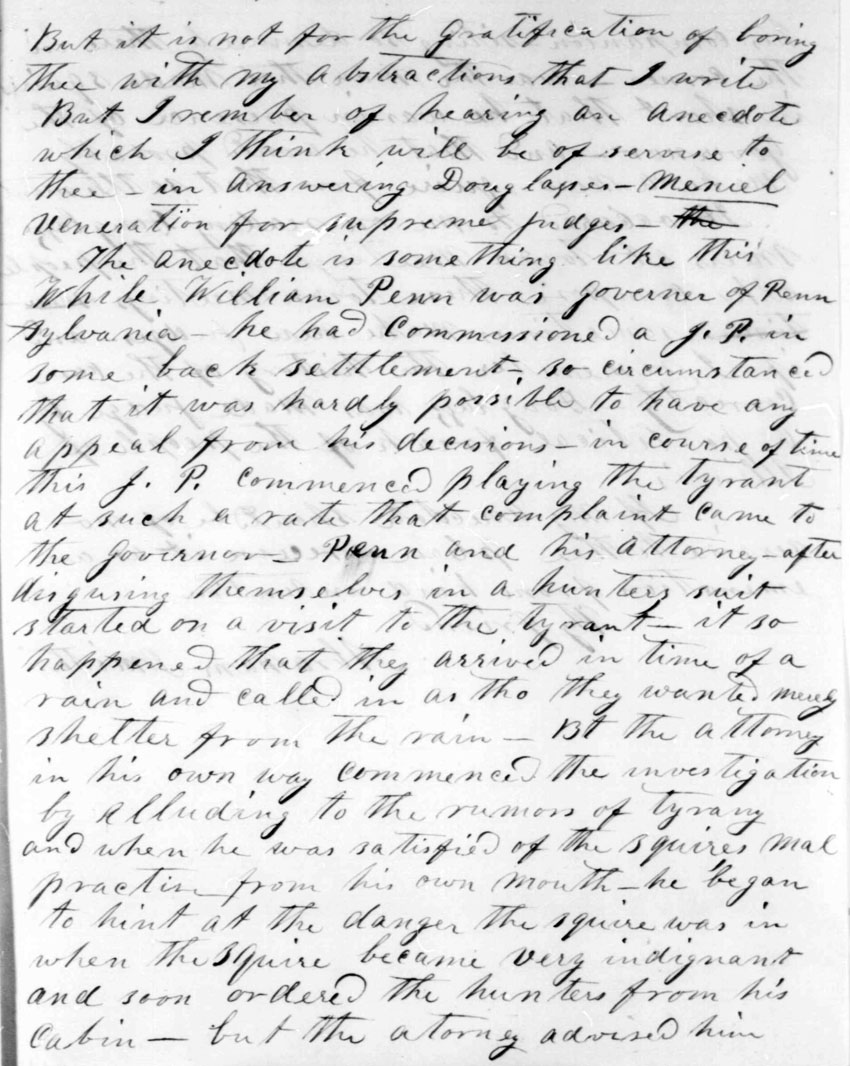 But it is not for the gratification of boring
thee with my abstractions that I write
But I rember of hearing an anecdote
which I think will be of servise to
thee - in answering Douglasses - Meniel
veneration for supreme judges - the
The anecdote is something like this
While William Penn was governer of Penn
sylvania - he had commissioned a J. P. in
some back settlement - so circumstanced
that it was hardly possible to have any
appeal from his decisions - in course of time
this J. P. commenced playing the tyrant
at such a rate that complaint came to
the governor - Penn and his attorney - after
disgusing themselves in a hunters suit
started on a visit to the tyrant - it so
happened that they arrived in time of a
rain and called in as tho they wanted merely
shelter from the rain - Bt the attorney
in his own way commenced the investigation
by alluding to the rumors of tyrany
and when he was satisfied of the squires mal
practise from his own mouth - he began
to hint at the danger the squire was in
when the squire became very indignant
and soon ordered the hunters from his
cabin - but the atorney advised him